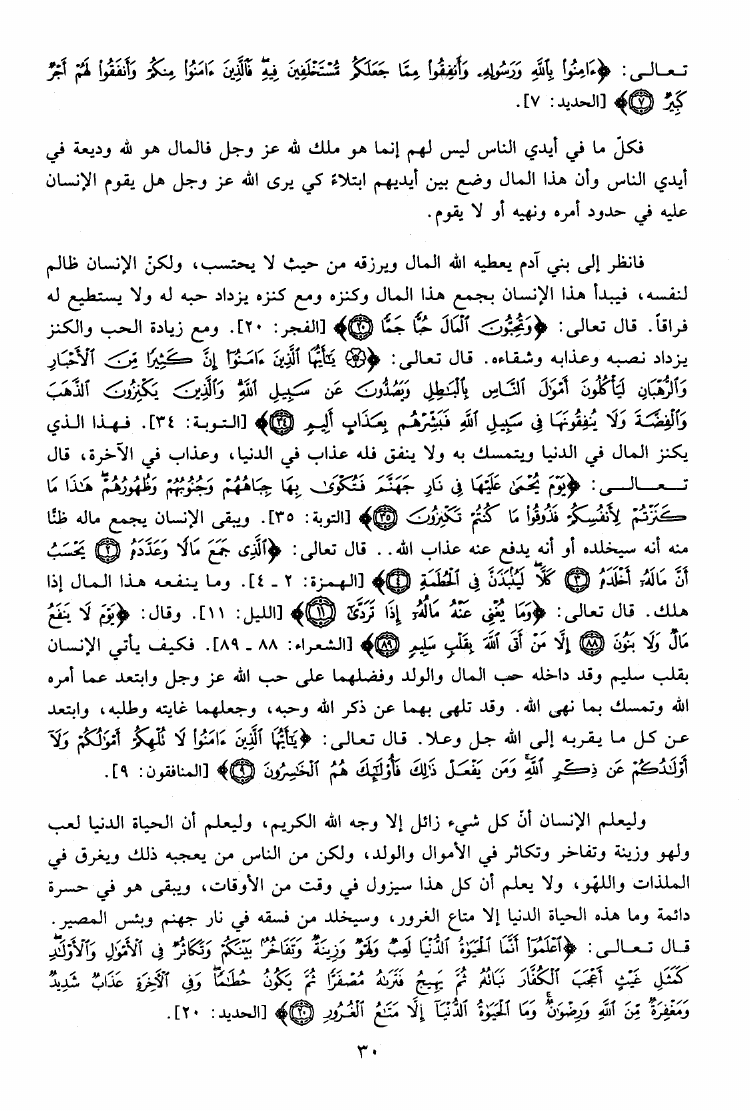 تعالى: ﴿ءَامِنُوا۟ بِٱللَّهِ وَرَسُولِهِۦ وَأَنفِقُوا۟ مِمَّا جَعَلَكُم مُّسْتَخْلَفِينَ فِيهِ ۖ فَٱلَّذِينَ ءَامَنُوا۟ مِنكُمْ وَأَنفَقُوا۟ لَهُمْ أَجْرٌ
كَبِيرٌ ٧﴾ [الحديد: ٧].
فكلّ ما في أيدي الناس ليس لهم إنما هو ملك لله عز وجل فالمال هو لله وديعة في
أيدي الناس وأن هذا المال وضع بين أيديهم ابتلاءً كي يرى الله عز وجل هل يقوم الإنسان
عليه في حدود أمره ونهيه أو لا يقوم.
فانظر إلى بني آدم يعطيه الله المال ويرزقه من حيث لا يحتسب، ولكنّ الإنسان ظالم
لنفسه، فيبدأ هذا الإنسان بجمع هذا المال وكنزه ومع كنزه يزداد حبه له ولا يستطيع له
فراقاً. قال تعالى: ﴿وَتُحِبُّونَ ٱلْمَالَ حُبًّا جَمًّا ٢٠﴾ [الفجر: ٢٠]. ومع زيادة الحب والكنز
يزداد نصبه وعذابه وشقاءه. قال تعالى: ﴿۞ يَٰٓأَيُّهَا ٱلَّذِينَ ءَامَنُوٓا۟ إِنَّ كَثِيرًا مِّنَ ٱلْأَحْبَارِ
وَٱلرُّهْبَانِ لَيَأْكُلُونَ أَمْوَٰلَ ٱلنَّاسِ بِٱلْبَٰطِلِ وَيَصُدُّونَ عَن سَبِيلِ ٱللَّهِ ۗ وَٱلَّذِينَ يَكْنِزُونَ ٱلذَّهَبَ
وَٱلْفِضَّةَ وَلَا يُنفِقُونَهَا فِى سَبِيلِ ٱللَّهِ فَبَشِّرْهُم بِعَذَابٍ أَلِيمٍ ٣٤﴾ [التوبة: ٣٤]. فهذا الذي
يكنز المال في الدنيا ويتمسك به ولا ينفق فله عذاب في الدنيا، وعذاب في الآخرة، قال
تعالى: ﴿يَوْمَ يُحْمَىٰ عَلَيْهَا فِى نَارِ جَهَنَّمَ فَتُكْوَىٰ بِهَا جِبَاهُهُمْ وَجُنُوبُهُمْ وَظُهُورُهُمْ ۖ هَٰذَا مَا
كَنَزْتُمْ لِأَنفُسِكُمْ فَذُوقُوا۟ مَا كُنتُمْ تَكْنِزُونَ ٣٥﴾ [التوبة: ٣٥]. ويبقى الإنسان يجمع ماله ظنًّا
منه أنه سيخلده أو أنه يدفع عنه عذاب الله.. قال تعالى: ﴿ٱلَّذِى جَمَعَ مَالًا وَعَدَّدَهُۥ ٢ يَحْسَبُ
أَنَّ مَالَهُۥٓ أَخْلَدَهُۥ ٣ كَلَّا ۖ لَيُنۢبَذَنَّ فِى ٱلْحُطَمَةِ ٤﴾ [الهمزة: ٢ ـ ٤]. وما ينفعه هذا المال إذا
هلك. قال تعالى: ﴿وَمَا يُغْنِى عَنْهُ مَالُهُۥٓ إِذَا تَرَدَّىٰٓ ١١﴾ [الليل: ١١]. وقال: ﴿يَوْمَ لَا يَنفَعُ
مَالٌ وَلَا بَنُونَ ٨٨ إِلَّا مَنْ أَتَى ٱللَّهَ بِقَلْبٍ سَلِيمٍ ٨٩﴾ [الشعراء: ٨٨ ـ ٨٩]. فكيف يأتي الإنسان
بقلب سليم وقد داخله حب المال والولد وفضلهما على حب الله عز وجل وابتعد عما أمره
الله وتمسك بما نهى الله. وقد تلهى بهما عن ذكر الله وحبه، وجعلهما غايته وطلبه، وابتعد
عن كل ما يقربه إلى الله جل وعلا. قال تعالى: ﴿يَٰٓأَيُّهَا ٱلَّذِينَ ءَامَنُوا۟ لَا تُلْهِكُمْ أَمْوَٰلُكُمْ وَلَآ
أَوْلَٰدُكُمْ عَن ذِكْرِ ٱللَّهِ ۚ وَمَن يَفْعَلْ ذَٰلِكَ فَأُو۟لَٰٓئِكَ هُمُ ٱلْخَٰسِرُونَ ٩﴾ [المنافقون: ٩].
وليعلم الإنسان أنّ كل شيء زائل إلا وجه الله الكريم، وليعلم أن الحياة الدنيا لعب
ولهو وزينة وتفاخر وتكاثر في الأموال والولد، ولكن من الناس من يعجبه ذلك ويغرق في
الملذات واللهّو، ولا يعلم أن كل هذا سيزول في وقت من الأوقات، ويبقى هو في حسرة
دائمة وما هذه الحياة الدنيا إلا متاع الغرور، وسيخلد من فسقه في نار جهنم وبئس المصير.
قال تعالى: ﴿ٱعْلَمُوٓا۟ أَنَّمَا ٱلْحَيَوٰةُ ٱلدُّنْيَا لَعِبٌ وَلَهْوٌ وَزِينَةٌ وَتَفَاخُرٌۢ بَيْنَكُمْ وَتَكَاثُرٌ فِى ٱلْأَمْوَٰلِ وَٱلْأَوْلَٰدِ ۖ
كَمَثَلِ غَيْثٍ أَعْجَبَ ٱلْكُفَّارَ نَبَاتُهُۥ ثُمَّ يَهِيجُ فَتَرَىٰهُ مُصْفَرًّا ثُمَّ يَكُونُ حُطَٰمًا ۖ وَفِى ٱلْءَاخِرَةِ عَذَابٌ شَدِيدٌ
وَمَغْفِرَةٌ مِّنَ ٱللَّهِ وَرِضْوَٰنٌ ۚ وَمَا ٱلْحَيَوٰةُ ٱلدُّنْيَآ إِلَّا مَتَٰعُ ٱلْغُرُورِ ٢٠﴾ [الحديد: ٢٠].
٣٠